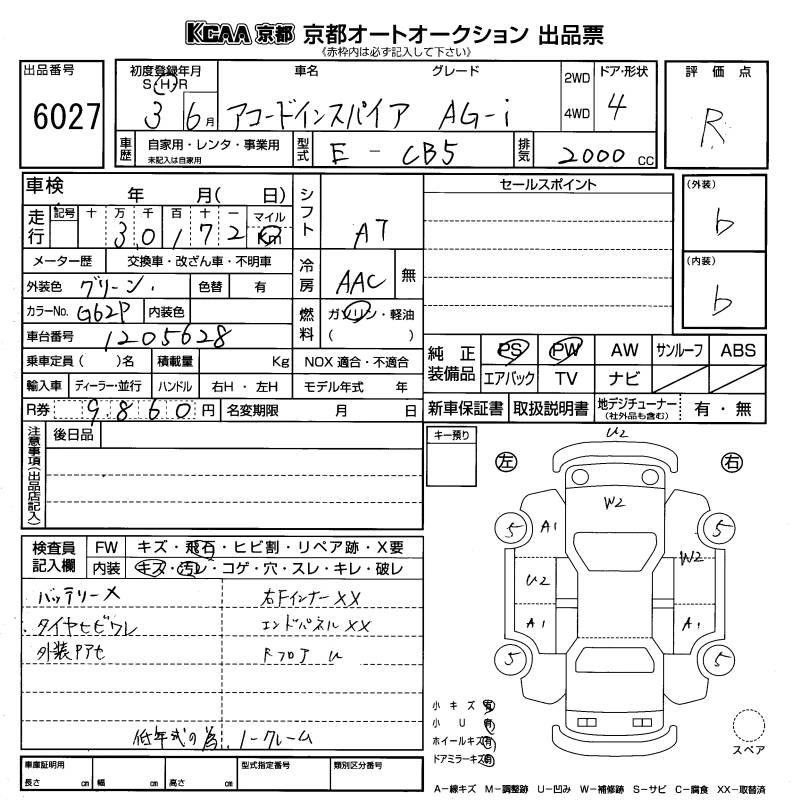 KCAA 京都 京都オートオークション 出品票
《赤枠内は必ず記入して下さい》
出品番号 6027
初度登録年月 S・H・R 3 6月
車名 グレード アコードインスパイア AG-i
2WD 4WD
ドア・形状 4
評価点 R
車歴 自家用・レンタ・事業用 未記入は自家用
型式 E-CB5
排気 2000 CC
車検 年 月( 日)
シフト AT
セールスポイント
(外装) b
(内装) b
走行 記号 十 万 千 百 十 一 マイル Km
30172
メーター歴 交換車・改ざん車・不明車
冷房 AAC 無
外装色 グリーン 色替 有
カラーNo. G62P 内装色
燃料 ガソリン・軽油 ( )
車台番号 1205628
乗車定員( )名 積載量 Kg NOX 適合・不適合
純正装備品 PS PW AW サンルーフ ABS
エアバック TV ナビ
輸入車 ディーラー・並行 ハンドル 右H・左H モデル年式 年
R券 9860円 名変期限 月 日
新車保証書 取扱説明書 地デジチューナー (社外品も含む) 有・無
注意事項(出品店記入) 後日品
キー預り
左 右
U2
W2
A1
W2
U2
A1
A1
5 5
5 5
検査員記入欄 FW キズ・飛石・ヒビ割・リペア跡・X要
内装 キズ・汚レ・コゲ・穴・スレ・キレ・破レ
バッテリーX 右Fインナー XX
タイヤヒビワレ エンドパネル XX
外装Pアセ Fフロア U
低年式の為ノークレーム
小キズ 有
小U 有
ホイールキズ 有
ドアミラーキズ 有
スペア
車庫証明用 長さ cm 幅 cm 高さ cm
型式指定番号 類別区分番号
A−線キズ M−調整跡 U−凹み W−補修跡 S−サビ C−腐食 XX−取替済